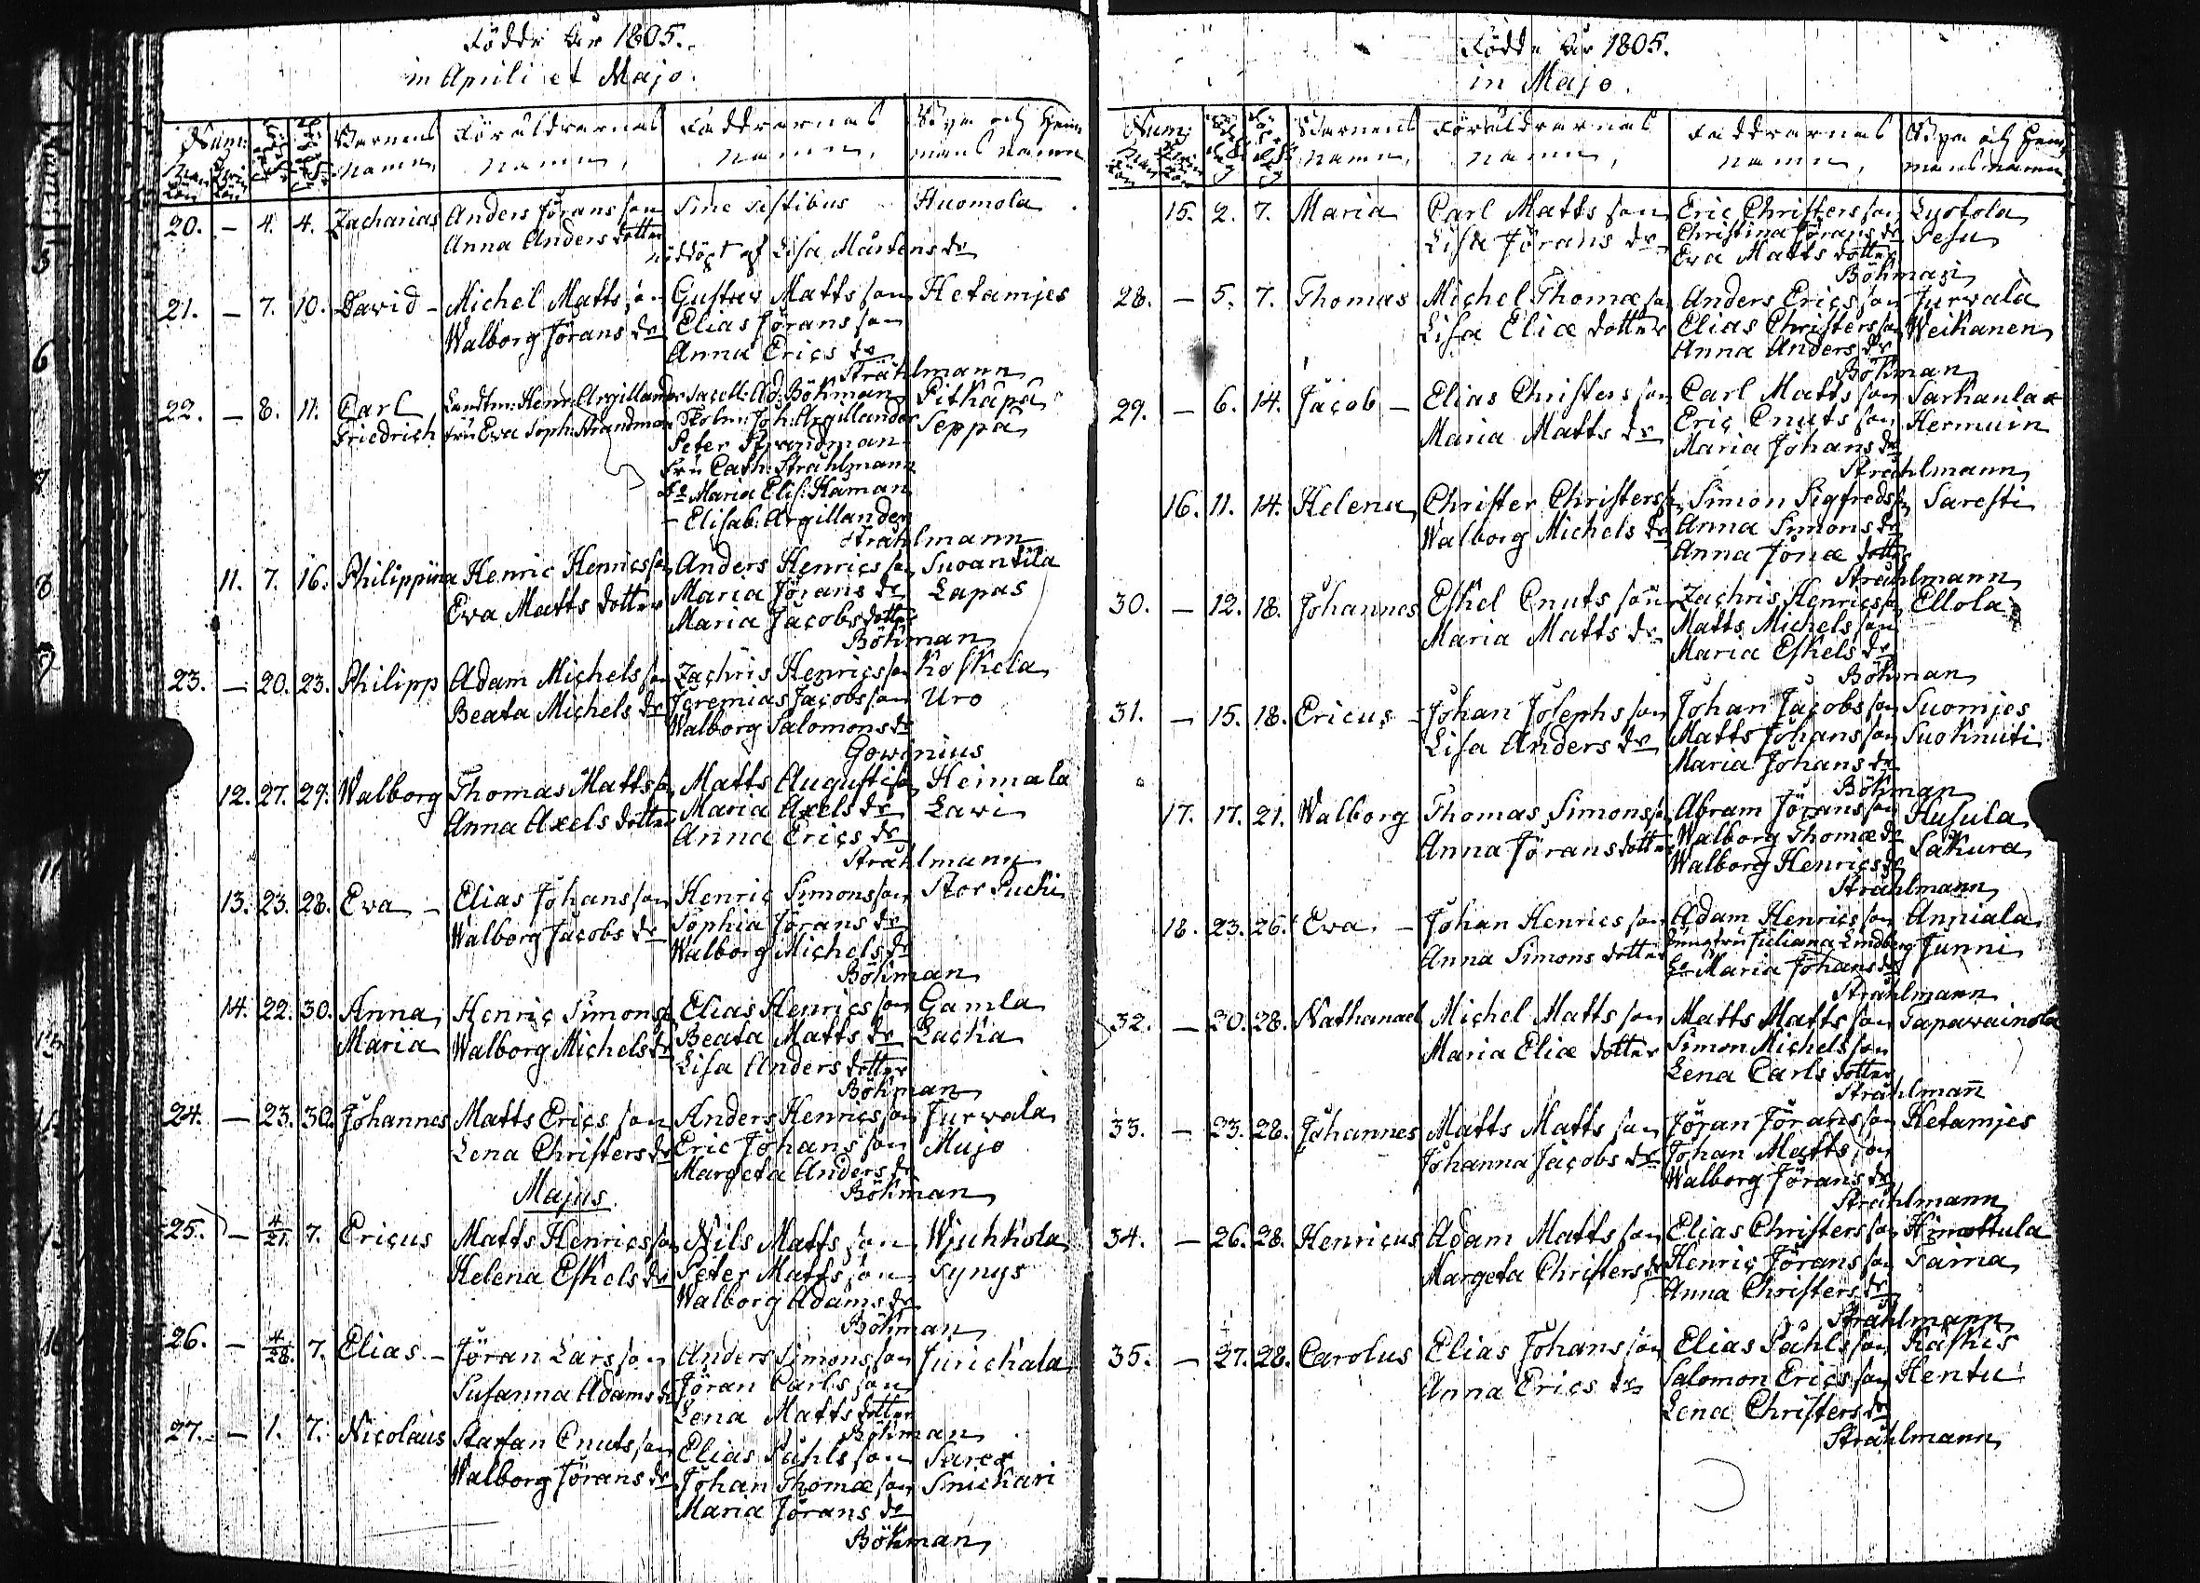 Födde År 1805.
in Aprili et Majo.
Num: Barnens Föräldrarnas Faddrarnas Byar och Hem
Man Qvin namn, namn, namn, mans namn
kön kön
20. – 4. 4. Zacharias Anders Jörans son Sine testibus Huomola
Anna Anders dotter
nöddöpt af Lisa Mårtens dr
21. – 7. 10. David – Michel Matts son Gustav Matts son Hetamjes
Walborg Jörans dr Elias Jörans son
Anna Erics dr
Strählmann
22. – 8. 11. Carl Landtm: Henr: Argillander Sacell: Ad: Böhman Pithäpä
Friedrich fru Eva Soph: Strandman Skolm: Joh: Argillander Seppä
Peter Strandman
Fru Cath: Strahlmann
do Maria Elis: Haman
– Elisab: Argillander
Strahlmann
11. 7. 16. Philippina Henric Henrics son Anders Henrics son Suoantila
Eva Matts dotter Maria Jörans dr Lapas
Maria Jacobs dotter
Böhman
23. – 20. 23. Philipp Adam Michels son Zachris Henrics son Koskela
Beata Michels dr Jeremias Jacobs son Uro
Walborg Salomons dr
Gowinius
12. 27. 29. Walborg Thomas Matts son Matts Augusti son Heimala
Anna Axels dotter Maria Axels dr Lavi
Anna Erics dr
Strahlmann
13. 23. 28. Eva – Elias Johans son Henric Simons son Stor Suchi
Walborg Jacobs dr Sophia Jörans dr
Walborg Michels dr
Böhman
14. 22. 30. Anna Henric Simons son Elias Henrics son Gamla
Maria Walborg Michels dr Beata Matts dr Lachia
Lisa Anders dotter
Böhman
24. – 23. 30. Johannes Matts Erics son Anders Henrics son Jurvala
Lena Christers dr Eric Johans son Mujo
Margeta Anders dr
Majus. Böhman
25. – 4/21. 7. Ericus Matts Henrics son Nils Matts son Wjuhkola
Helena Eskels dr Peter Matts son Synys
Walborg Adams dr
Böhman
26. – 4/28. 7. Elias – Jöran Lars son Anders Simons son Jurickala
Susanna Adams dr Jöran Carls son
Lena Matts dotter
Böhman
27. – 1. 7. Nicolaus Staffan Cnuts son Elias Påhls son Sarca
Walborg Jörans dr Johan Thomæ son Snickari
Maria Jörans dr
Böhman
Födde År 1805.
in Majo.
Num: Barnens Föräldrarnas Faddrarnas Byar och Hem
Man Qvin namn, namn, namn, mans namn
kön kön
15. 2. 7. Maria Carl Matts son Eric Christers son Lyotola
Lisa Jörans dr Christina Jörans dr Pesu
Eva Matts dotter
Böhman
28. – 5. 7. Thomas Michel Thomæ son Anders Erics son Jurvala
Lisa Eliæ dotter Elias Christers son Weikanen
Anna Anders dr
Böhman
29. – 6. 14. Jacob – Elias Christers son Carl Matts son Sarkanlax
Maria Matts dr Eric Cnuts son Hermuin
Maria Johans dr
Strahlmann
16. 11. 14. Helena Christer Christers son Simon Sigfreds son Saresti
Walborg Michels dr Anna Simons dr
Anna Jonæ dotter
Strahlmann
30. – 12. 18. Johannes Eskel Cnuts son Zachris Henrics son Ellola
Maria Matts dr Matts Michels son
Maria Eskels dr
Böhman
31. – 15. 18. Ericus – Johan Josephs son Johan Jacobs son Suomjes
Lisa Anders dr Matts Johans son Suoknuti
Maria Johans dr
Böhman
17. 17. 21. Walborg Thomas Simons son Abram Jörans son Husula
Anna Jörans dotter Walborg Thomæ dr Sakura
Walborg Henrics dr
Strahlmann
18. 23. 26. Eva. – Johan Henrics son Adam Henrics son Anniala
Anna Simons dotter Jungfru Juliana Lindberg Junni
Maria Johans dr
Strahlmann
32. – 20. 28. Nathanael Michel Matts son Matts Matts son Tapavainola
Maria Eliæ dotter Simon Michels son
Lena Carls dotter
Strahlmann
33. – 23. 28. Johannes Matts Matts son Jöran Jörans son Hetamjes
Johanna Jacobs dr Johan Matts son
Walborg Jörans dr
Strahlmann
34. – 26. 28. Henricus Adam Matts son Elias Christers son Himottula
Margeta Christers dr Henric Jörans son Taina
Anna Christers dr
Strahlmann
35. – 27. 28. Carolus Elias Johans son Elias Påhls son Käskis
Anna Erics dr Salomon Erics son Hentu
Lena Christers dr
Strahlmann